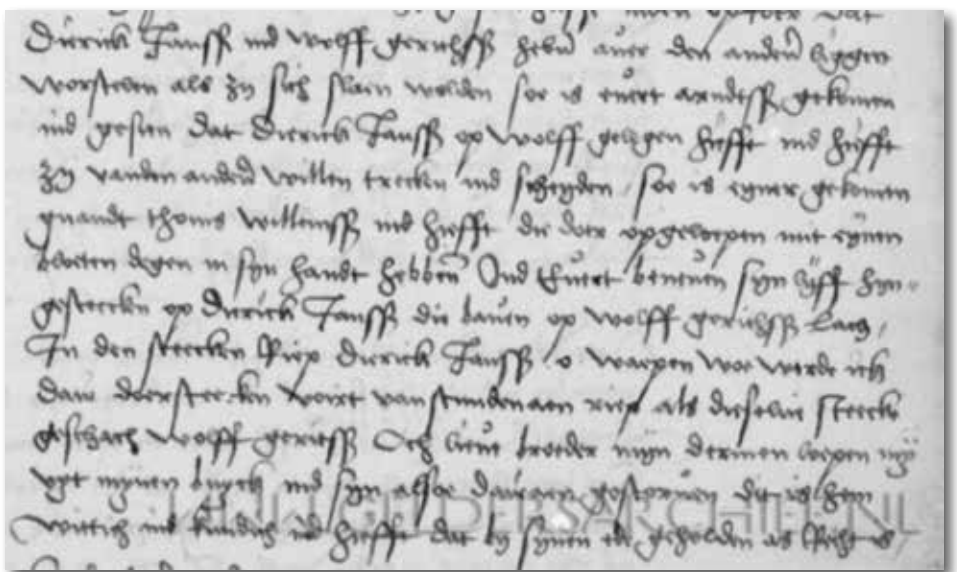 dat
Dierick Janss ind Wolff gerichss hebn auer den anderen liggen
worstelen als zy sich slaen wolden soe is euert arndtss gekomen
ind gesien dat Dierick Janss op Wolff gelegen hefft ind hefft
zy vanden anderen willen trecken ind scheyden, soe is eyner gekomen
gnandt thoms willemss ind hefft die doer opgeloepen mit eynen
bloeten degen in syn handt hebben Ind Euert beneuen syn lyff hyn-
gestecken op Dierick Janss die bauen op Wolff gerichss lach,
In den steecken Riep Dierick Janss o waepen woe werde ich
daer doersteecken voirt van stunden aen riep als dieselue steecke
geschach Wolff gerichss Och lieue broeder myn dermen loepen my
vyt mynen buyck ind syn alsoe daeraen gestoruen dit is hem
wittich ind kundich ind hefft dat by synen ede geholden as Recht is
KONINGHERSARCHIEF.NL